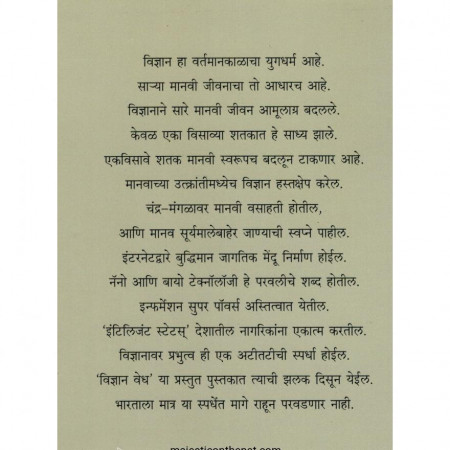 विज्ञान हा वर्तमानकाळाचा युगधर्म आहे.
साऱ्या मानवी जीवनाचा तो आधारच आहे.
विज्ञानाने सारे मानवी जीवन आमूलाग्र बदलले.
केवळ एका विसाव्या शतकात हे साध्य झाले.
एकविसावे शतक मानवी स्वरूपच बदलून टाकणार आहे.
मानवाच्या उत्क्रांतीमध्येच विज्ञान हस्तक्षेप करेल.
चंद्र–मंगळावर मानवी वसाहती होतील,
आणि मानव सूर्यमालेबाहेर जाण्याची स्वप्ने पाहील.
इंटरनेटद्वारे बुद्धिमान जागतिक मेंदू निर्माण होईल.
नॅनो आणि बायो टेक्नॉलॉजी हे परवलीचे शब्द होतील.
इन्फर्मेशन सुपर पॉवर्स अस्तित्वात येतील.
'इंटिलिजंट स्टेटस्' देशातील नागरिकांना एकात्म करतील.
विज्ञानावर प्रभुत्व ही एक अटीतटीची स्पर्धा होईल.
'विज्ञान वेध' या प्रस्तुत पुस्तकात त्याची झलक दिसून येईल.
भारताला मात्र या स्पर्धेत मागे राहून परवडणार नाही.
majesticonthenet.com